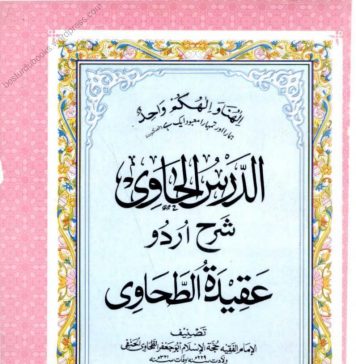 besturdubooks.wordpress.com
اِلٰهُنَا وَاِلٰهُكُمْ وَاحِدٌ
ہمارا اور تمہارا معبود ایک ہے
الدَّرْسُ الحَاوِی
شرح اردو
عَقِیدَةُ الطَّحَاوِی
تصنیف
الإمام الفقیہ حجة الإسلام ابو جعفر الطحاوی الحنفی